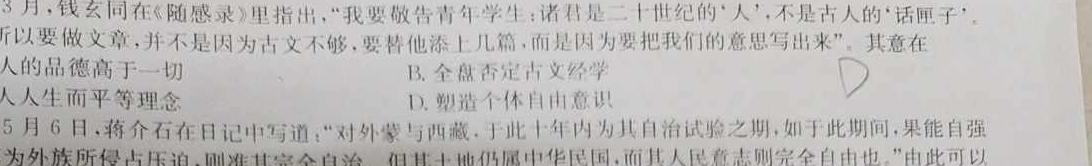 3月,钱玄同在《随感录》里指出,“我要敬告青年学生:诸君是二十世纪的‘人’,不是古人的‘话匣子’。
所以要做文章,并不是因为古文不够,要替他添上几篇,而是因为要把我们的意思写出来”。其意在
人的品德高于一切 B. 全盘否定古文经学
人人生而平等理念 D. 塑造个体自由意识
D
5月6日,蒋介石在日记中写道:“对外蒙与西藏,于此十年内为其自治试验之期,如于此期间,果能自强
为外族所侵占压迫,则准其完全自治,但其土地仍属中华民国,而其人民意志则完全自由也。”由此可以